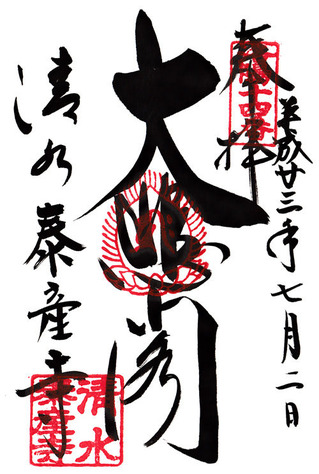 奉拝
平成廿三年七月二日
大悲閣
清水泰産寺
清水
泰産寺